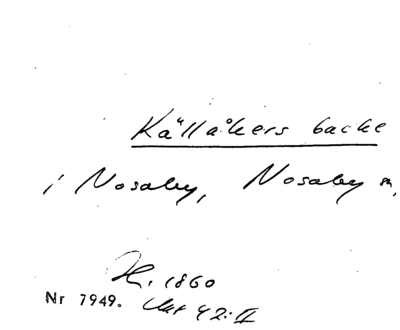 Källåkers backe
i Nosaby, Nosaby sn,
H. 1860
Nr 7949. Akt 42:II